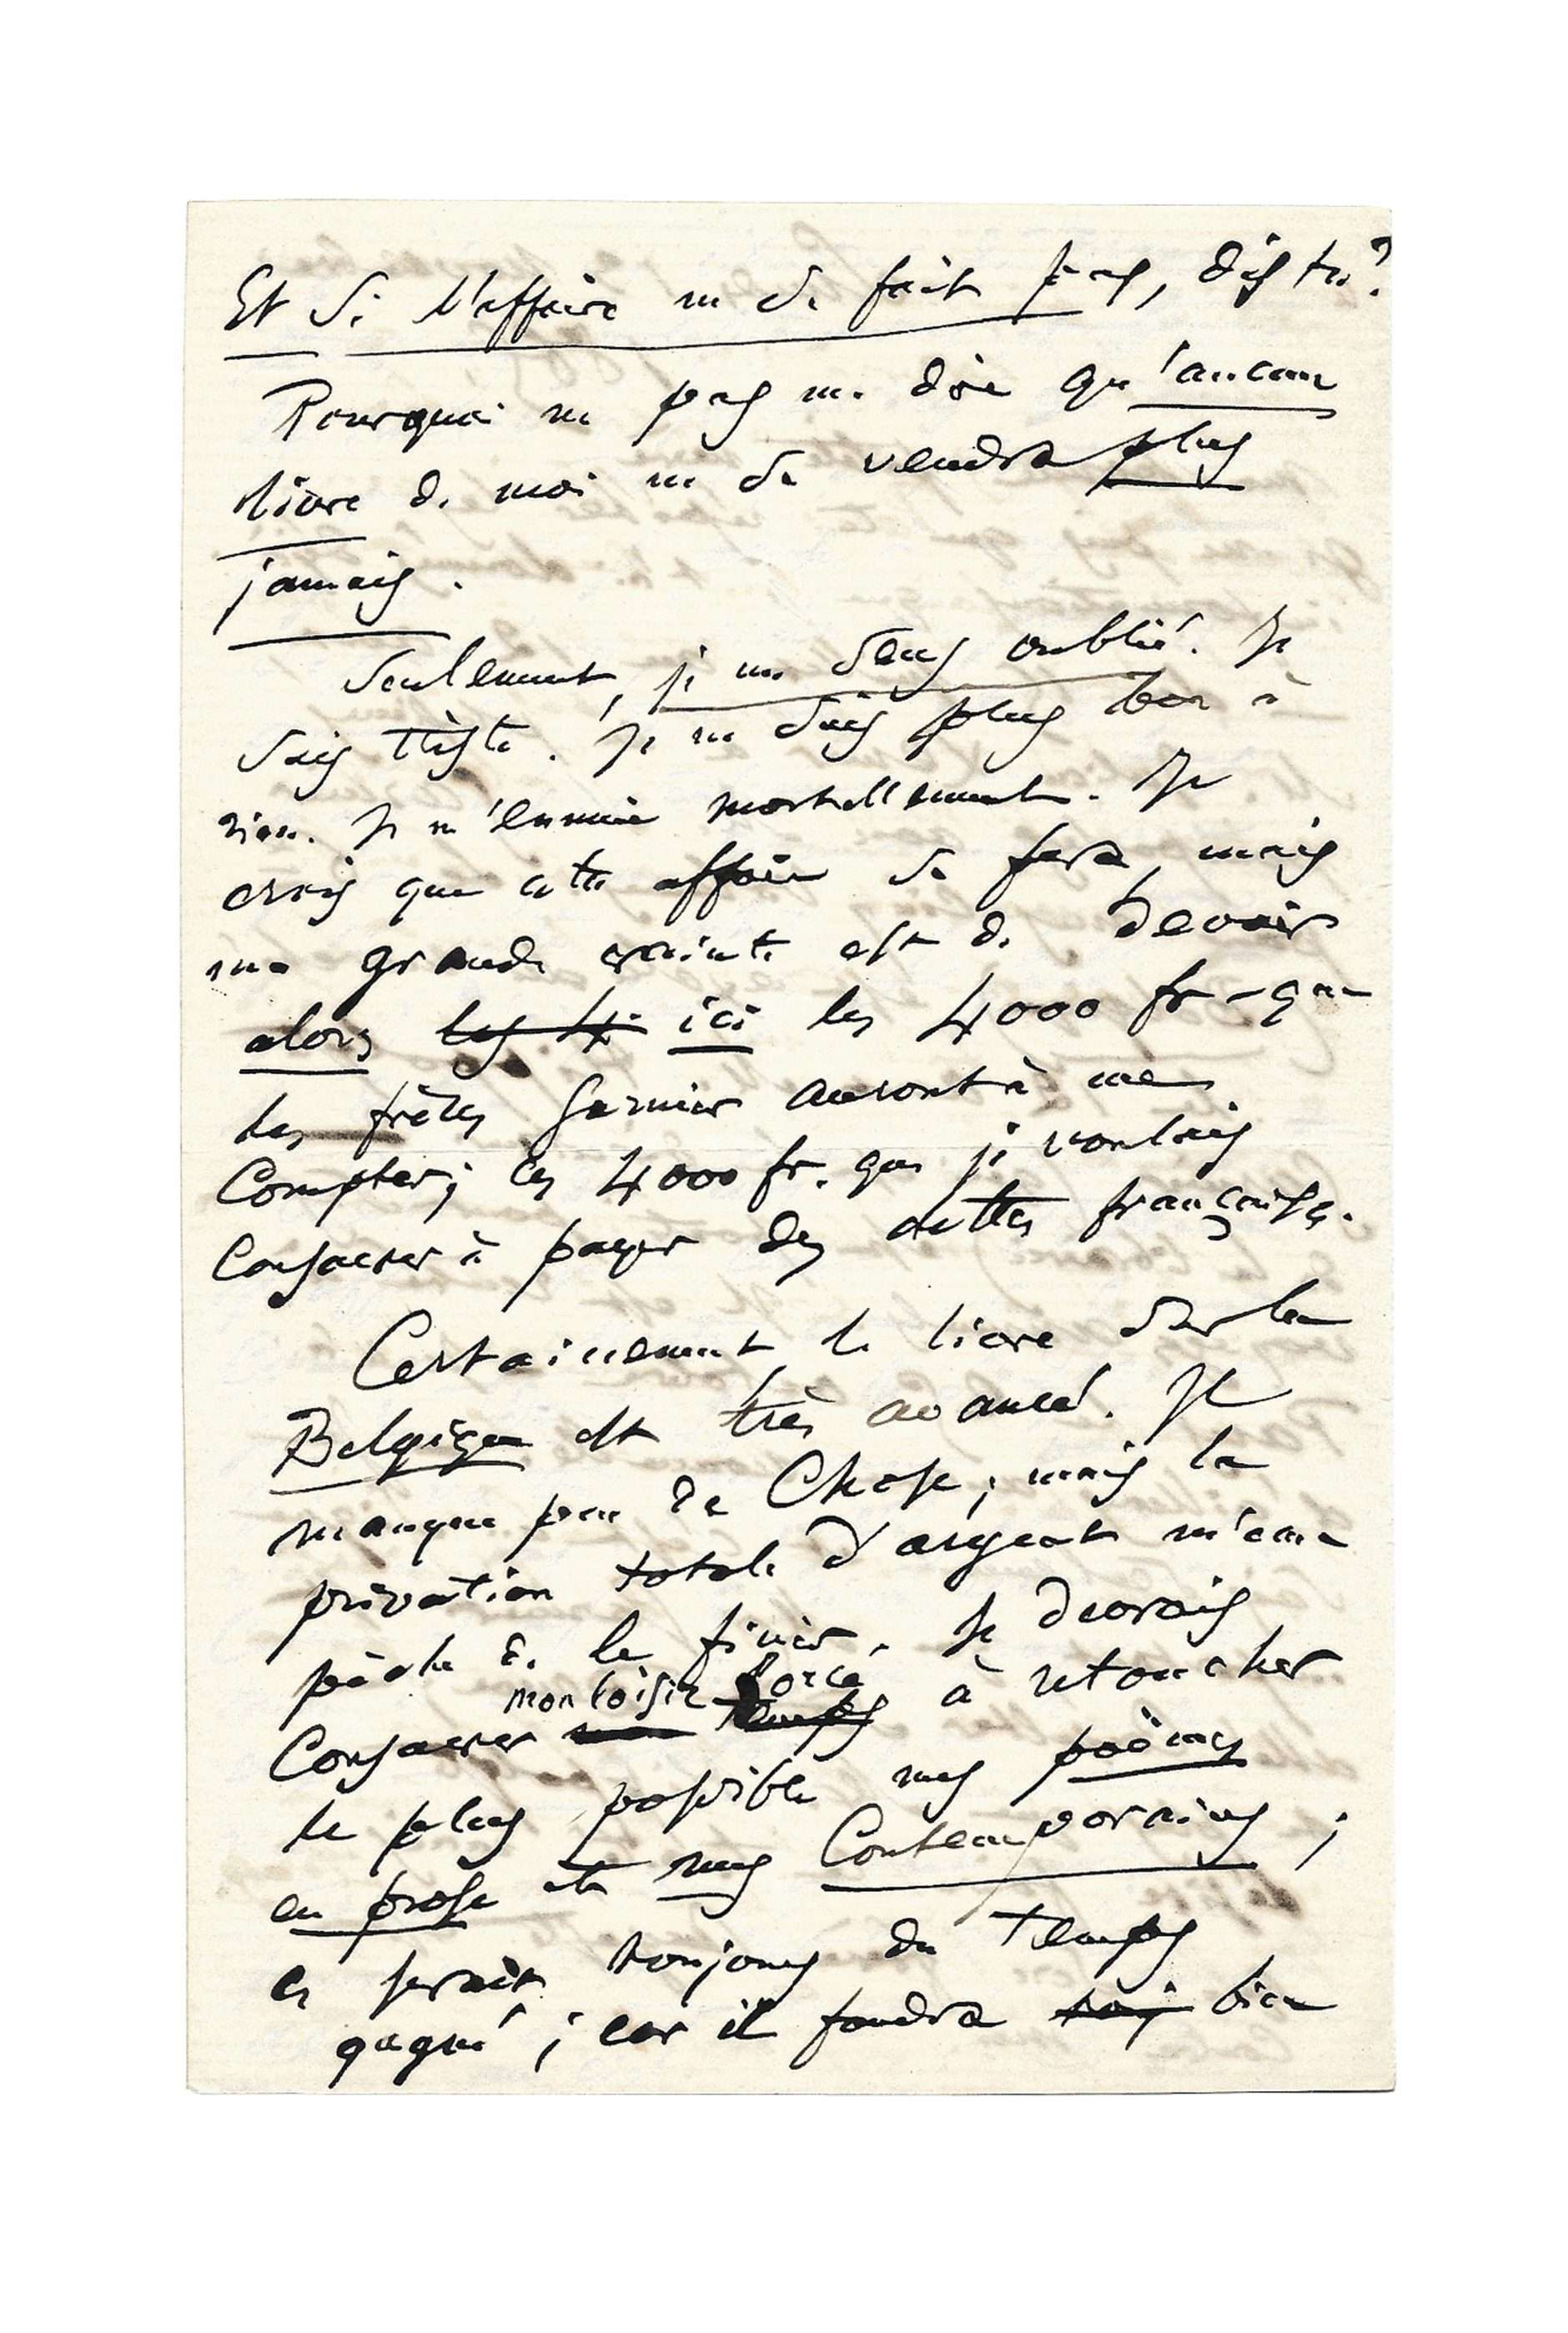 Et si l'affaire ne se fait pas, dis tu?
Pourquoi ne pas me dire qu'aucun
livre de moi ne se vendra plus
jamais.
Seulement, je me sens oublié. Je
suis triste. Je ne suis plus bon à
rien. Je m'ennuie mortellement. Je
crois que cette affaire se fera, mais
ma grande crainte est de devoir
alors les 4 ici les 4000 fr – que
les frères Garnier auront à me
compter; ces 4000 fr. que je voulais
consacrer à payer des dettes françaises.
Certainement, le livre sur la
Belgique est très avancé. Il
manque peu de chose; mais la
privation totale d'argent m'em-
pêche de le finir. Je devrais
mon loisir forcé
consacrer mon temps à retoucher
le plus possible mes poëmes
en prose et mes Contemporains;
ce serait toujours du temps
gagné; car il faudra bien